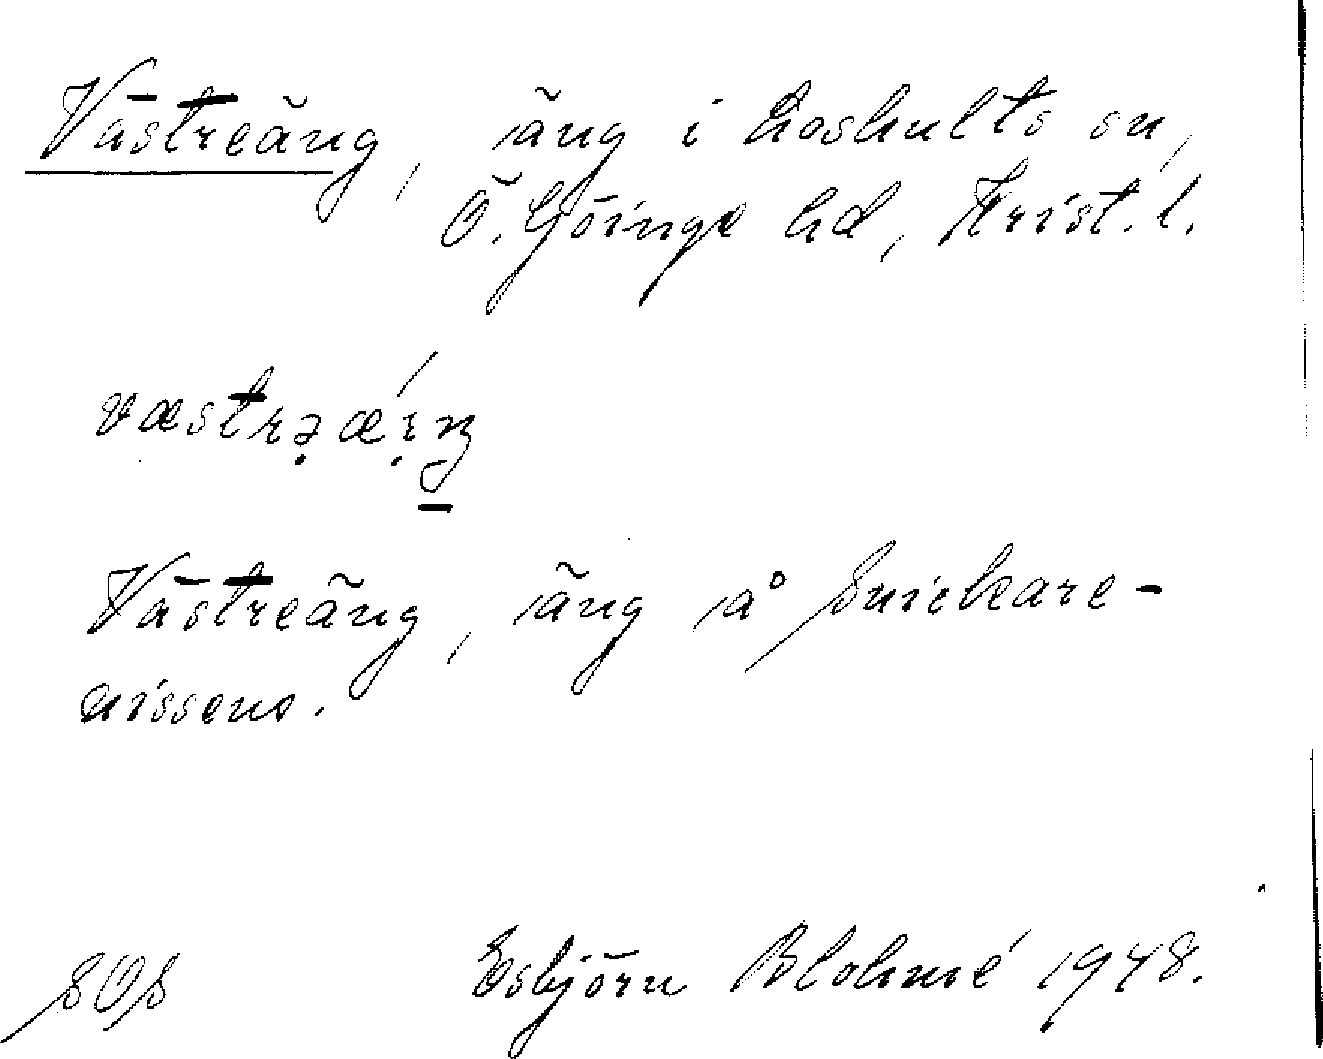 Västreäng, äng i Loshults sn,
Ö. Göinge hd, Krist. l.
Västreäng, äng å Snickare-
nissens.
SOS Esbjörn Blohmé 1948.